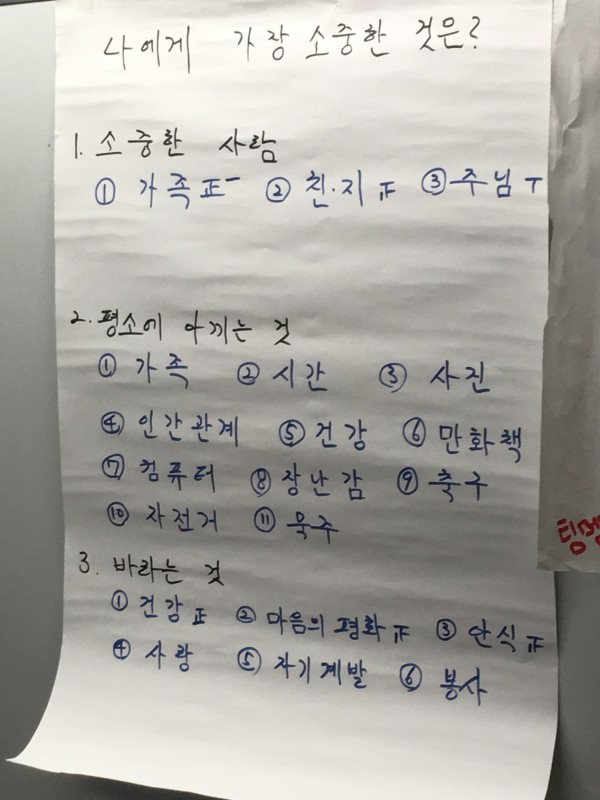 나에게 가장 소중한 것은?
1. 소중한 사람
① 가족 正一 ② 친·지 正 ③ 주님 丅
2. 평소에 아끼는 것
① 가족 ② 시간 ③ 사진
④ 인간관계 ⑤ 건강 ⑥ 만화책
⑦ 컴퓨터 ⑧ 장난감 ⑨ 축구
⑩ 자전거 ⑪ 묵주
3. 바라는 것
① 건강 正 ② 마음의 평화 正 ③ 안식 正
④ 사랑 ⑤ 자기계발 ⑥ 봉사